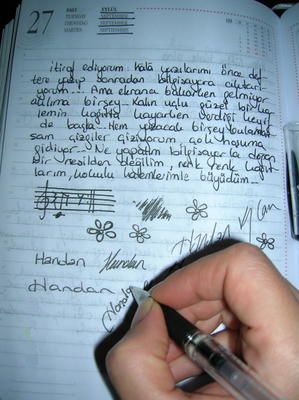 27
EYLÜL
TUESDAY
SEPTEMBER
DIENSTAG
SEPTEMBER
MARTES
itiraf ediyorum: Hâlâ yazılarımı önce def
tere yazıp sonradan bilgisayara aktarı
yorum...! Ama ekrana bakarken gelmiyor
aklıma birşey. Kalın uçlu güzel bir ka
lemin kağıtta kayarken verdiği keyif
de başka... Hem yazacak birşey bulamaz
sam çizgiler çiziyorum, çok hoşuma
gidiyor... Ne yapayım bilgisayarla doğan
bir nesilden değilim, renk renk kağıt
larım, kokulu kalemlerimle büyüdüm...
Handan
Handan
Handan
Handan